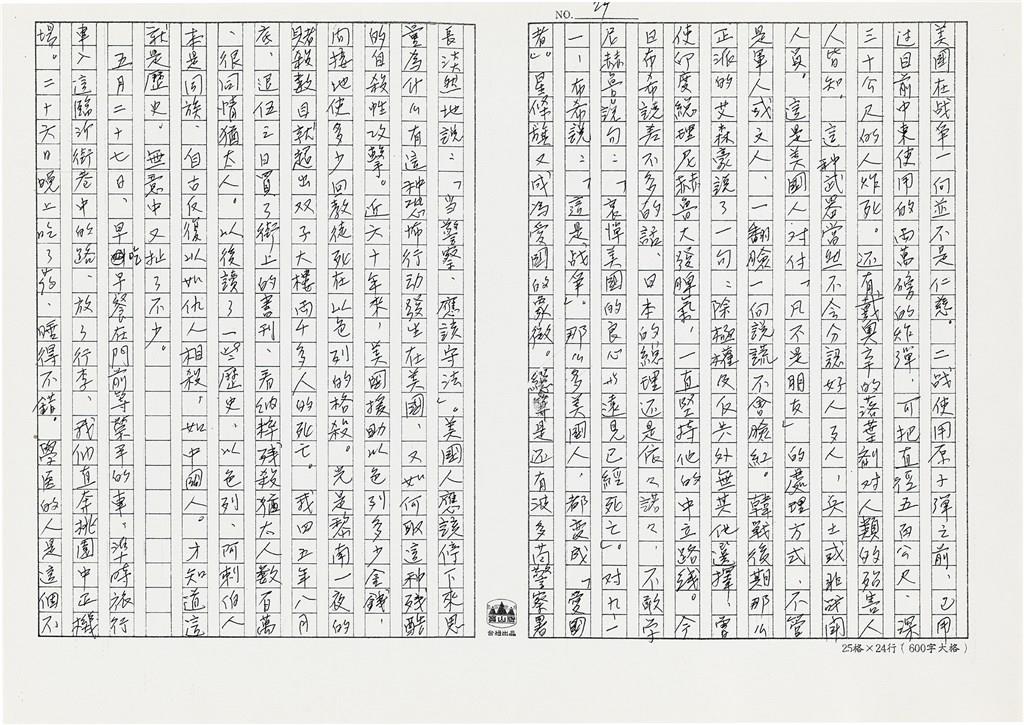 NO. 29
美國在战争一向並不是仁慈。二战使用原子弹之前，已用
过目前中東使用的兩萬磅的炸弹，可把直徑五百公尺、深
三十公尺的人炸死。还有戴奥辛的落葉剤对人類的弱害人
人皆知。這种武器當然不会分認好人歹人，兵士或非战鬪
人員。這是美國人对付「凡不是朋友」的處理方式，不管
是軍人或文人，一翻臉一向説謊不會臉紅。韓戰後期那么
正派的艾森豪説了一句：除極權及反共外無其他選擇，害
使印度総理尼赫魯大發脾氣，一直堅持他的中立路线。今
日布希説差不多的話，日本的総理还是依々諾々，不敢学
尼赫魯説句：「哀悼美國的良心与遠見已經死亡」。对九一
一，布希説：「這是战争」。那么多美國人，都变成「愛國
者」。星條旗又成為愛國的象徵。總算是还有波多茵警察署
長淡然地説：「當警察，應該守法」。美國人應該停下來思
量為什么有這种恐怖行动發生在美國，又如何取這种残酷
的自殺性攻擊。近六十年來，美國援助以色列多少金錢，
间接地使多少回教徒死在以色列的格殺。光是黎南一夜的
賭殺数目就超出双子大樓兩千多人的死亡。我四五年八月
底，退伍三日買了街上的書刊，看纳粹残殺猶太人数百萬
，很同情猶太人。以後讀了一些歷史，以色列、阿剌伯人
本是同族，自古反復以如仇人相殺，如中國人。才知道這
就是歷史。無意中又扯了不少。
五月二十七日，早吃早餐在門前等榮平的車，準時旅行
車入這臨沂街巷中的路，放了行李，我们直奔桃園中正機
場。二十六日晚上吃了药，睡得不錯。學医的人是這個不
台灣出品
25格×24行（600字大格）